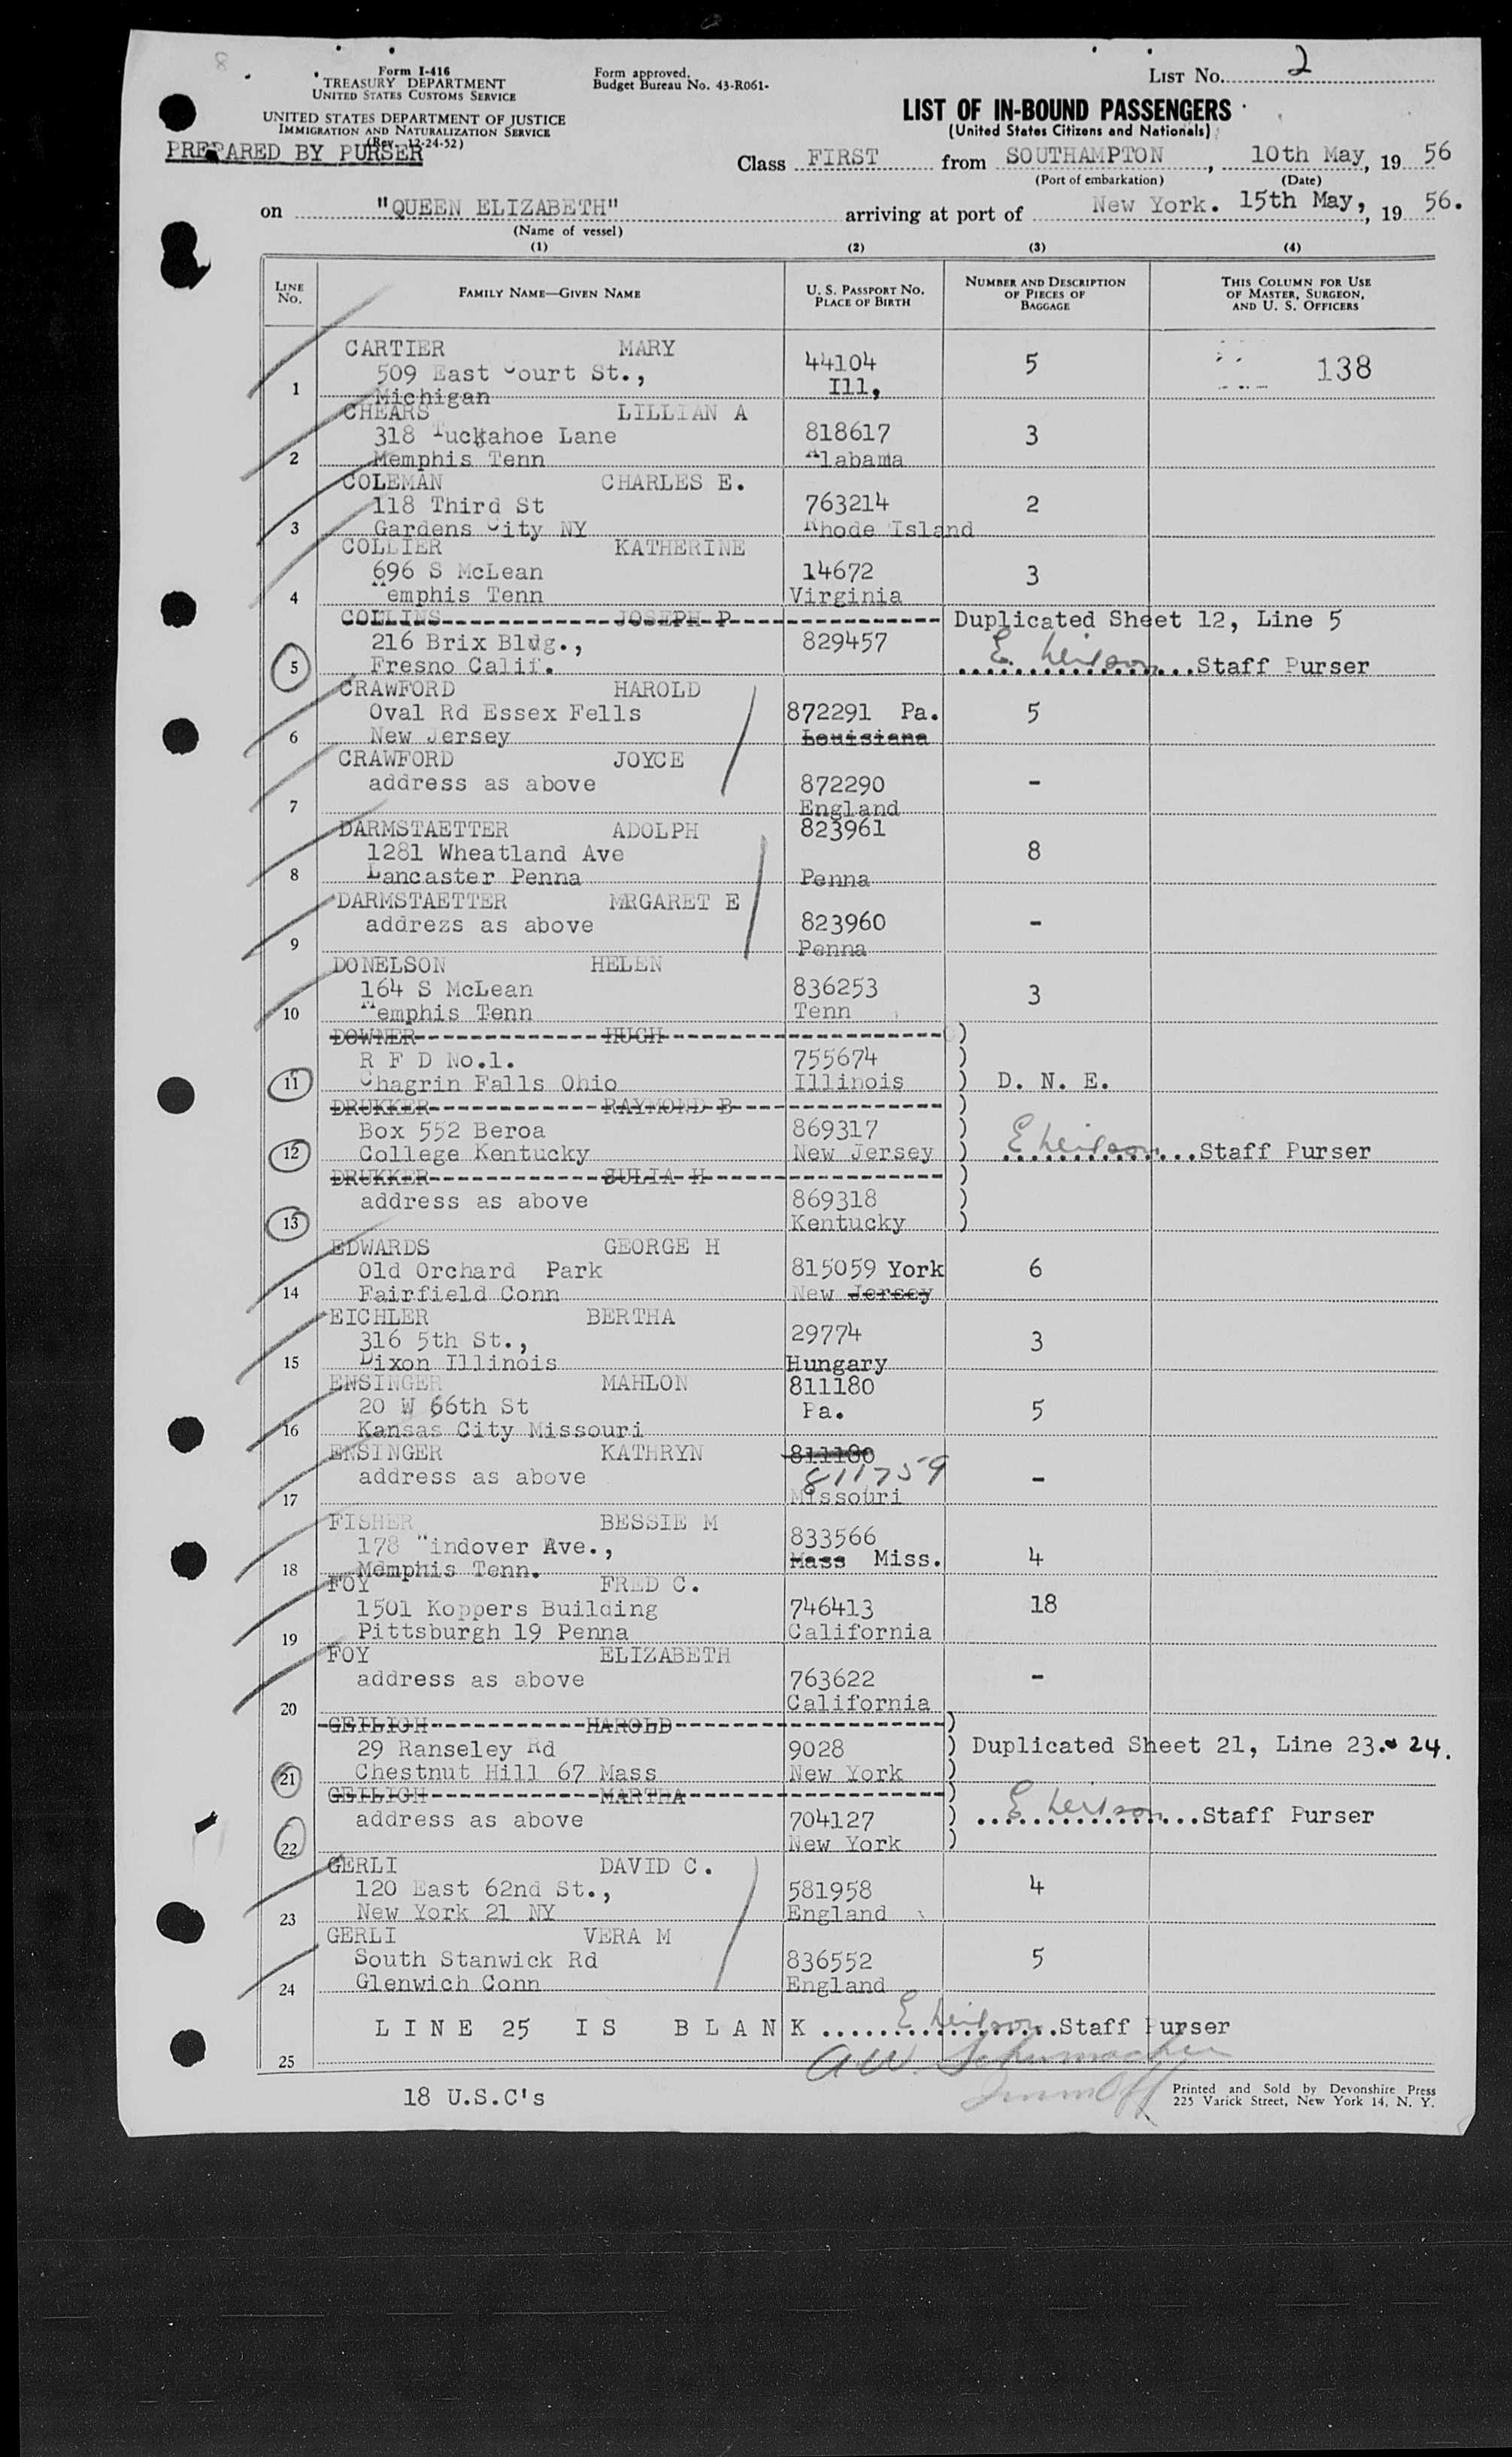 Form I-416
TREASURY DEPARTMENT
UNITED STATES CUSTOMS SERVICE
UNITED STATES DEPARTMENT OF JUSTICE
IMMIGRATION AND NATURALIZATION SERVICE
(Rev. 12-24-52)
PREPARED BY PURSER
Form approved.
Budget Bureau No. 43-R061-
LIST No. 2
LIST OF IN-BOUND PASSENGERS
(United States Citizens and Nationals)
Class FIRST from SOUTHAMPTON, 10th May, 19 56
(Port of embarkation) (Date)
on "QUEEN ELIZABETH" arriving at port of New York. 15th May, 19 56.
(Name of vessel)
(1) (2) (3) (4)
LINE No. FAMILY NAME—GIVEN NAME U. S. PASSPORT NO. PLACE OF BIRTH NUMBER AND DESCRIPTION OF PIECES OF BAGGAGE THIS COLUMN FOR USE OF MASTER, SURGEON, AND U. S. OFFICERS
CARTIER MARY
509 East Court St., 44104 5 138
1 Michigan Ill,
CHEARS LILLIAN A
318 Tuckahoe Lane 818617 3
2 Memphis Tenn Alabama
COLEMAN CHARLES E.
118 Third St 763214 2
3 Gardens City NY Rhode Island
COLLIER KATHERINE
696 S McLean 14672 3
4 Memphis Tenn Virginia
COLLINS JOSEPH P Duplicated Sheet 12, Line 5
216 Brix Bldg., 829457
5 Fresno Calif. E. Neilson Staff Purser
CRAWFORD HAROLD
Oval Rd Essex Fells 872291 Pa. 5
6 New Jersey Louisiana
CRAWFORD JOYCE
address as above 872290 -
7 England
DARMSTAETTER ADOLPH 823961
1281 Wheatland Ave 8
8 Lancaster Penna Penna
DARMSTAETTER MRGARET E
addrezs as above 823960 -
9 Penna
DONELSON HELEN
164 S McLean 836253 3
10 Memphis Tenn Tenn
DOWNER HUGH )
R F D No.1. 755674 )
11 Chagrin Falls Ohio Illinois ) D. N. E.
DRUKKER RAYMOND B )
Box 552 Beroa 869317 )
12 College Kentucky New Jersey ) E Neilson Staff Purser
DRUKKER JULIA H )
address as above 869318 )
13 Kentucky )
EDWARDS GEORGE H
Old Orchard Park 815059 York 6
14 Fairfield Conn New Jersey
EICHLER BERTHA
316 5th St., 29774 3
15 Dixon Illinois Hungary
ENSINGER MAHLON 811180
20 W 66th St Pa. 5
16 Kansas City Missouri
ENSINGER KATHRYN 811180
address as above 811759 -
17 Missouri
FISHER BESSIE M
178 "indover Ave., 833566
18 Memphis Tenn. Mass Miss. 4
FOY FRED C.
1501 Koppers Building 746413 18
19 Pittsburgh 19 Penna California
FOY ELIZABETH
address as above 763622 -
20 California
GEILICH HAROLD )
29 Ranseley Rd 9028 ) Duplicated Sheet 21, Line 23. & 24.
21 Chestnut Hill 67 Mass New York )
GEILICH MARTHA )
address as above 704127 ) E Neilson Staff Purser
22 New York )
GERLI DAVID C.
120 East 62nd St., 581958 4
23 New York 21 NY England
GERLI VERA M
South Stanwick Rd 836552 5
24 Glenwich Conn England
LINE 25 IS BLANK E Neilson Staff Purser
25 AW. Schumacher
Imm Off
18 U.S.C's
Printed and Sold by Devonshire Press
225 Varick Street, New York 14, N. Y.